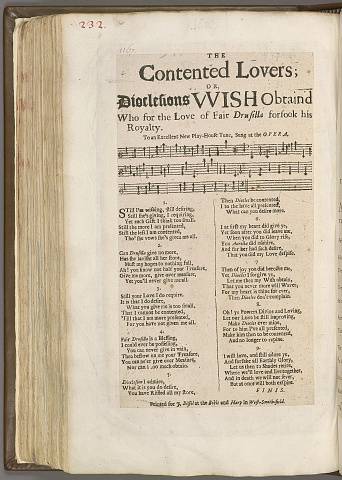 232.
THE
Contented Lovers;
OR,
Dioclesions WISH Obtaind
Who for the Love of Fair Drusilla forsook his
Royalty.
To an Excellent New Play-House Tune, Sung at the OPERA,
1.
STill I'm wishing, still desiring,
Still she's giving, I requiring,
Yet each Gift I think too small:
Still the more I am presented,
Still the less I am contented,
Tho' she vows she's given me all.
2.
Can Drusilla give no more,
Has she lavisht all her store,
Must my hopes to nothing fall,
Ah! you know not half your Treasure,
Give me more, give over measure,
Yet you'll never give me all.
3.
Still your Love I do require,
It is that I do desire,
What you give me is too small,
That I cannot be contented,
Till that I am more presented,
For you have not given me all.
4.
Fair Drusilla is a Blessing,
I could ever be possessing,
You can never give in vain,
Then bestow on me your Treasure,
You can ne'er give over Measure,
Nor can I too much obtain.
5.
Dioclesion I admire,
What it is you do desire,
You have Rifled all my store,
Then Diocles be contented,
I to the have all presented,
What can you desire more.
6.
I at first my heart did give ye,
Yet soon after you did leave me,
When you did to Glory rise,
You Aurelia did admire,
And for her had such desire,
That you did my Love despise.
7.
Then of joy you did bereave me,
Yet Diocles I forgive ye,
Let me then my Wish obtain,
That you never more will Waver,
For my heart is thine for ever,
Then Diocles don't complain.
8.
Oh! ye Powers Divine and Loving,
Let our Love be still improving,
Make Diocles ever mine,
For to him I've all presented,
Make him then to be contented,
And no longer to repine.
9.
I will love, and still adore ye,
And forsake all Earthly Glory,
Let us then to Shades retire,
Where we'll love and live together,
And in death we will not sever,
But at once will both expire.
FINIS.
Printed for J. Bissel at the Bible and Harp in West-Smithfield.